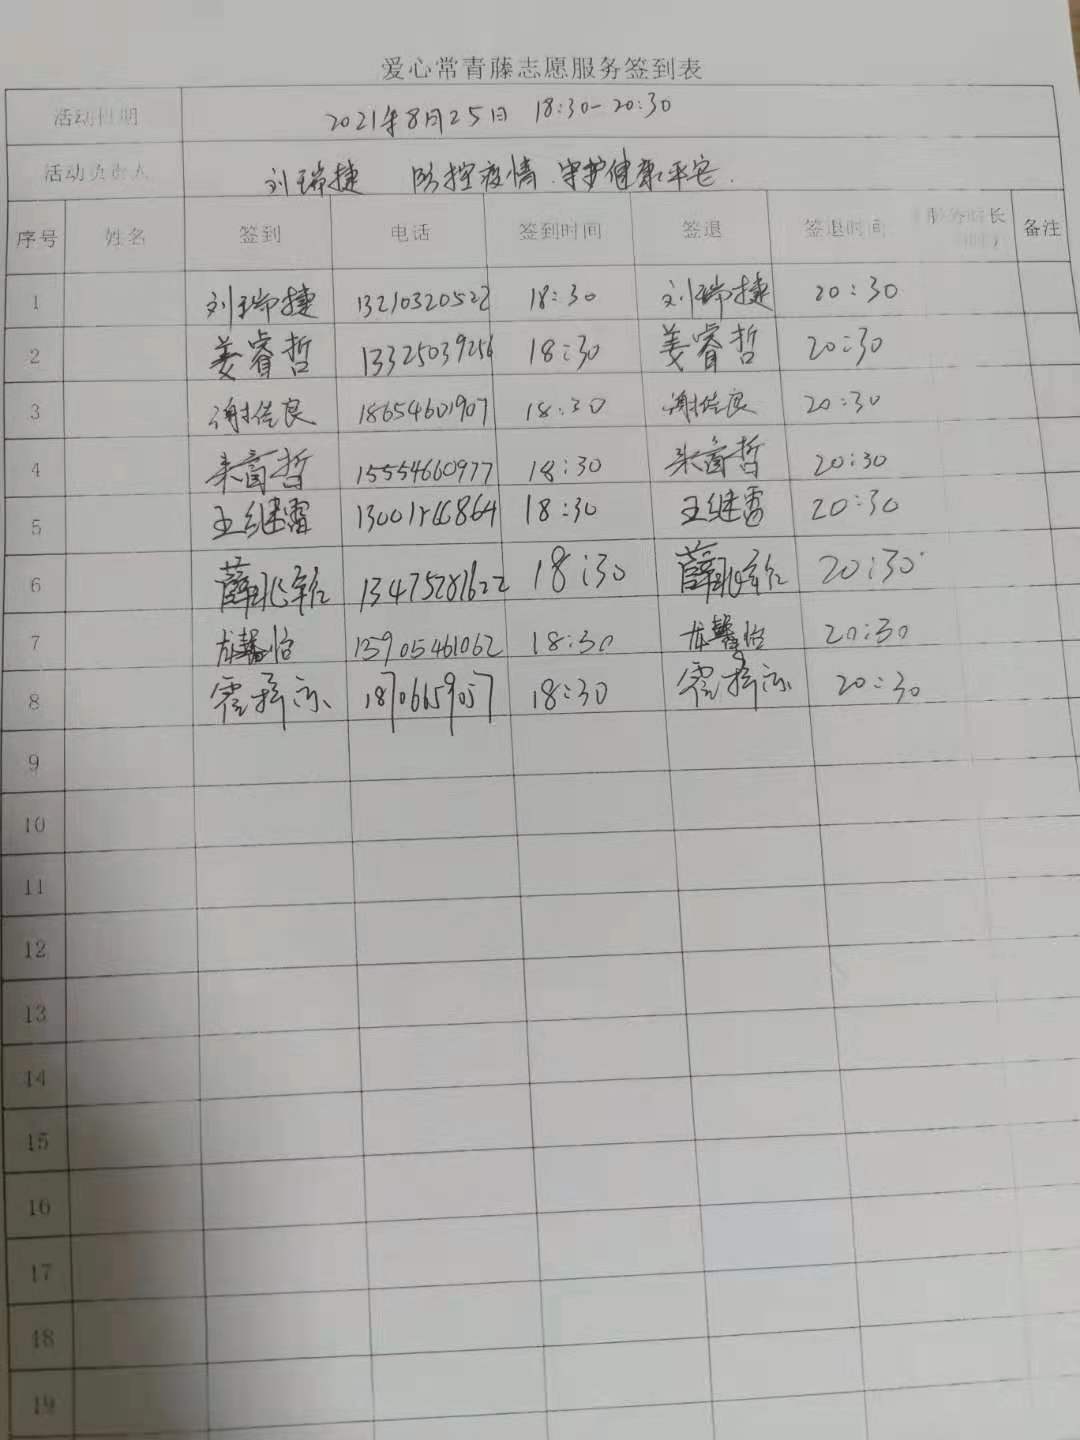 爱心常青藤志愿服务签到表
活动日期 2021年8月25日 18:30-20:30
活动负责人 刘瑞捷 防控疫情.守护健康平安.
序号 姓名 签到 电话 签到时间 签退 签退时间 服务时长 备注
1 刘瑞捷 13210320522 18:30 刘瑞捷 20:30
2 姜睿哲 13325039256 18:30 姜睿哲 20:30
3 谢佳良 18654601907 18:30 谢佳良 20:30
4 哲 15554660977 18:30 哲 20:30
5 王继雷 18:30 王继雷 20:30
6 薛 13475287622 18:30 薛 20:30
7 馨怡 15905461062 18:30 馨怡 20:30
8 18706659057 18:30 20:30
9
10
11
12
13
14
15
16
17
18
19